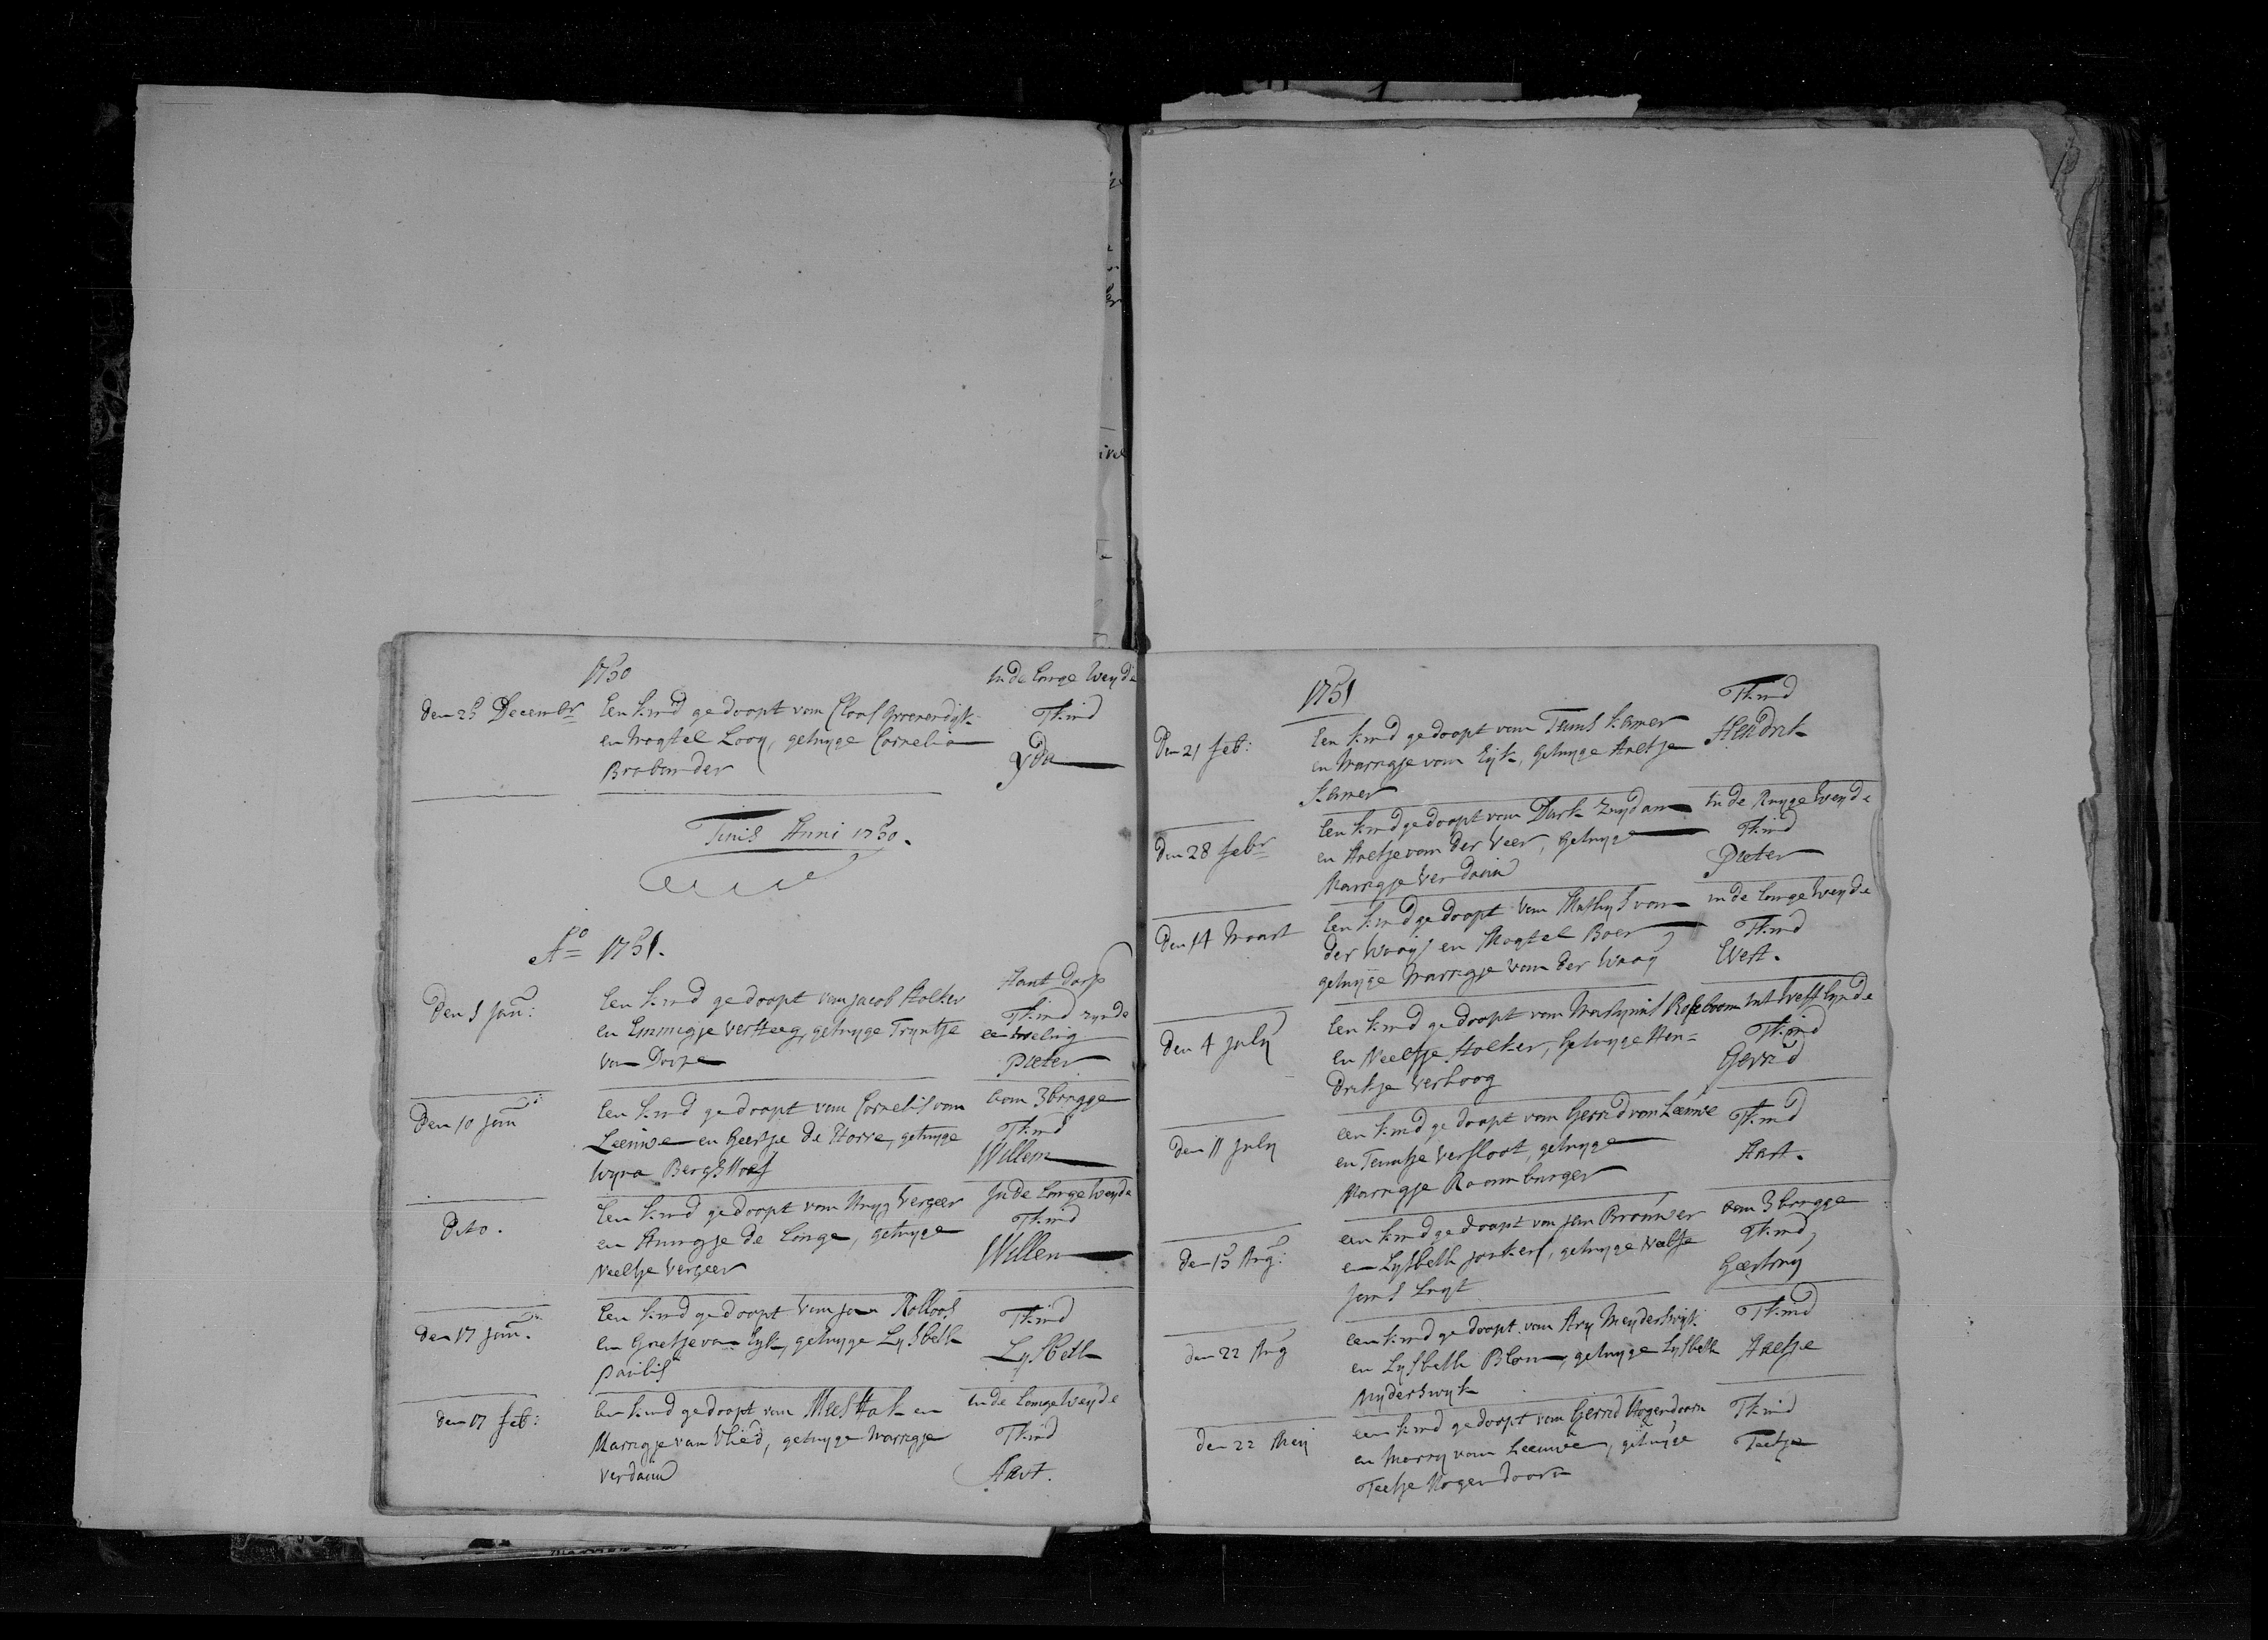 1750
in de Lange Weyde
den 25 Decembr
Een kind gedoopt van Claas Groenendijk
en Magtel Looy, getuyge Cornelia
Brabander
Tkind
Yda
Finis Anni 1750.
Ao 1751.
den 3 Jan:
Een kind gedoopt van Jacob Stolker
en Emmigje Versteeg, getuyge Tryntje
van Dorpe
Aant Dorp
Tkind zynde
een tweling
Pieter
Den 10 Jan:
Een kind gedoopt van Cornelis van
Leeuwe en Geertje de Horre, getuyge
Wyva Bergshoef
aan 3brugge
Tkind
Willem
Dito.
Een kind gedoopt van Huyg Vergeer
en Annigje de Lange, getuyge
Neeltje Vergeer
In de Lange Weyde
Tkind
Willem
den 17 Jan:
Een kind gedoopt van Jan Rolloos
en Grietje van Eyk, getuyge Lysbeth
Paulis
Tkind
Lysbeth
den 17 feb:
Een kind gedoopt van Mees Hak en
Marrigje van Vlied, getuyge Marrigje
Verdouw
in de Lange Weyde
Tkind
Aart.
1751
Den 21 feb:
Een kind gedoopt van Teunis Kamer
en Marrigje van Eyk, getuyge Aaltje
Kamer
Tkind
Hendrik
den 28 febr
Een kind gedoopt van Dirk Zuydam
en Aaltje van der Veer, getuyge
Marrigje Verdouw
in de Ruyge Weyde
Tkind
Pieter
den 14 Maart
Een kind gedoopt van Mathys van
der Waay en Magtel Boer
getuyge Marrigje van der Waay
in de Lange Weyde
Tkind
Evert.
den 4 July
Een kind gedoopt van Martynus Roseboom
en Neeltje Stolker, getuyge Hen=
drikje Verhoog
int Westeynde
Tkind
Gerrid
den 11 July
een kind gedoopt van Gerrid van Leeuwe
en Teuntje Versloot, getuyge
Marrigje Raamburger
Tkind
Aart.
den 15 Aug:
een kind gedoopt van Jan Brouwer
en Lysbeth Jonker, getuyge Neeltje
Jans
aan 3brugge
Tkind
den 22 Aug
een kind gedoopt van Ary Meyderswyk
en Lysbeth Blom, getuyge Lysbeth
Myderswyk
Tkind
Aaltje
den 22
een kind gedoopt van Gerrid Hogendoorn
en Marry van Leeuwe, getuyge
Teetje Hogendoorn
Tkind
Teetje